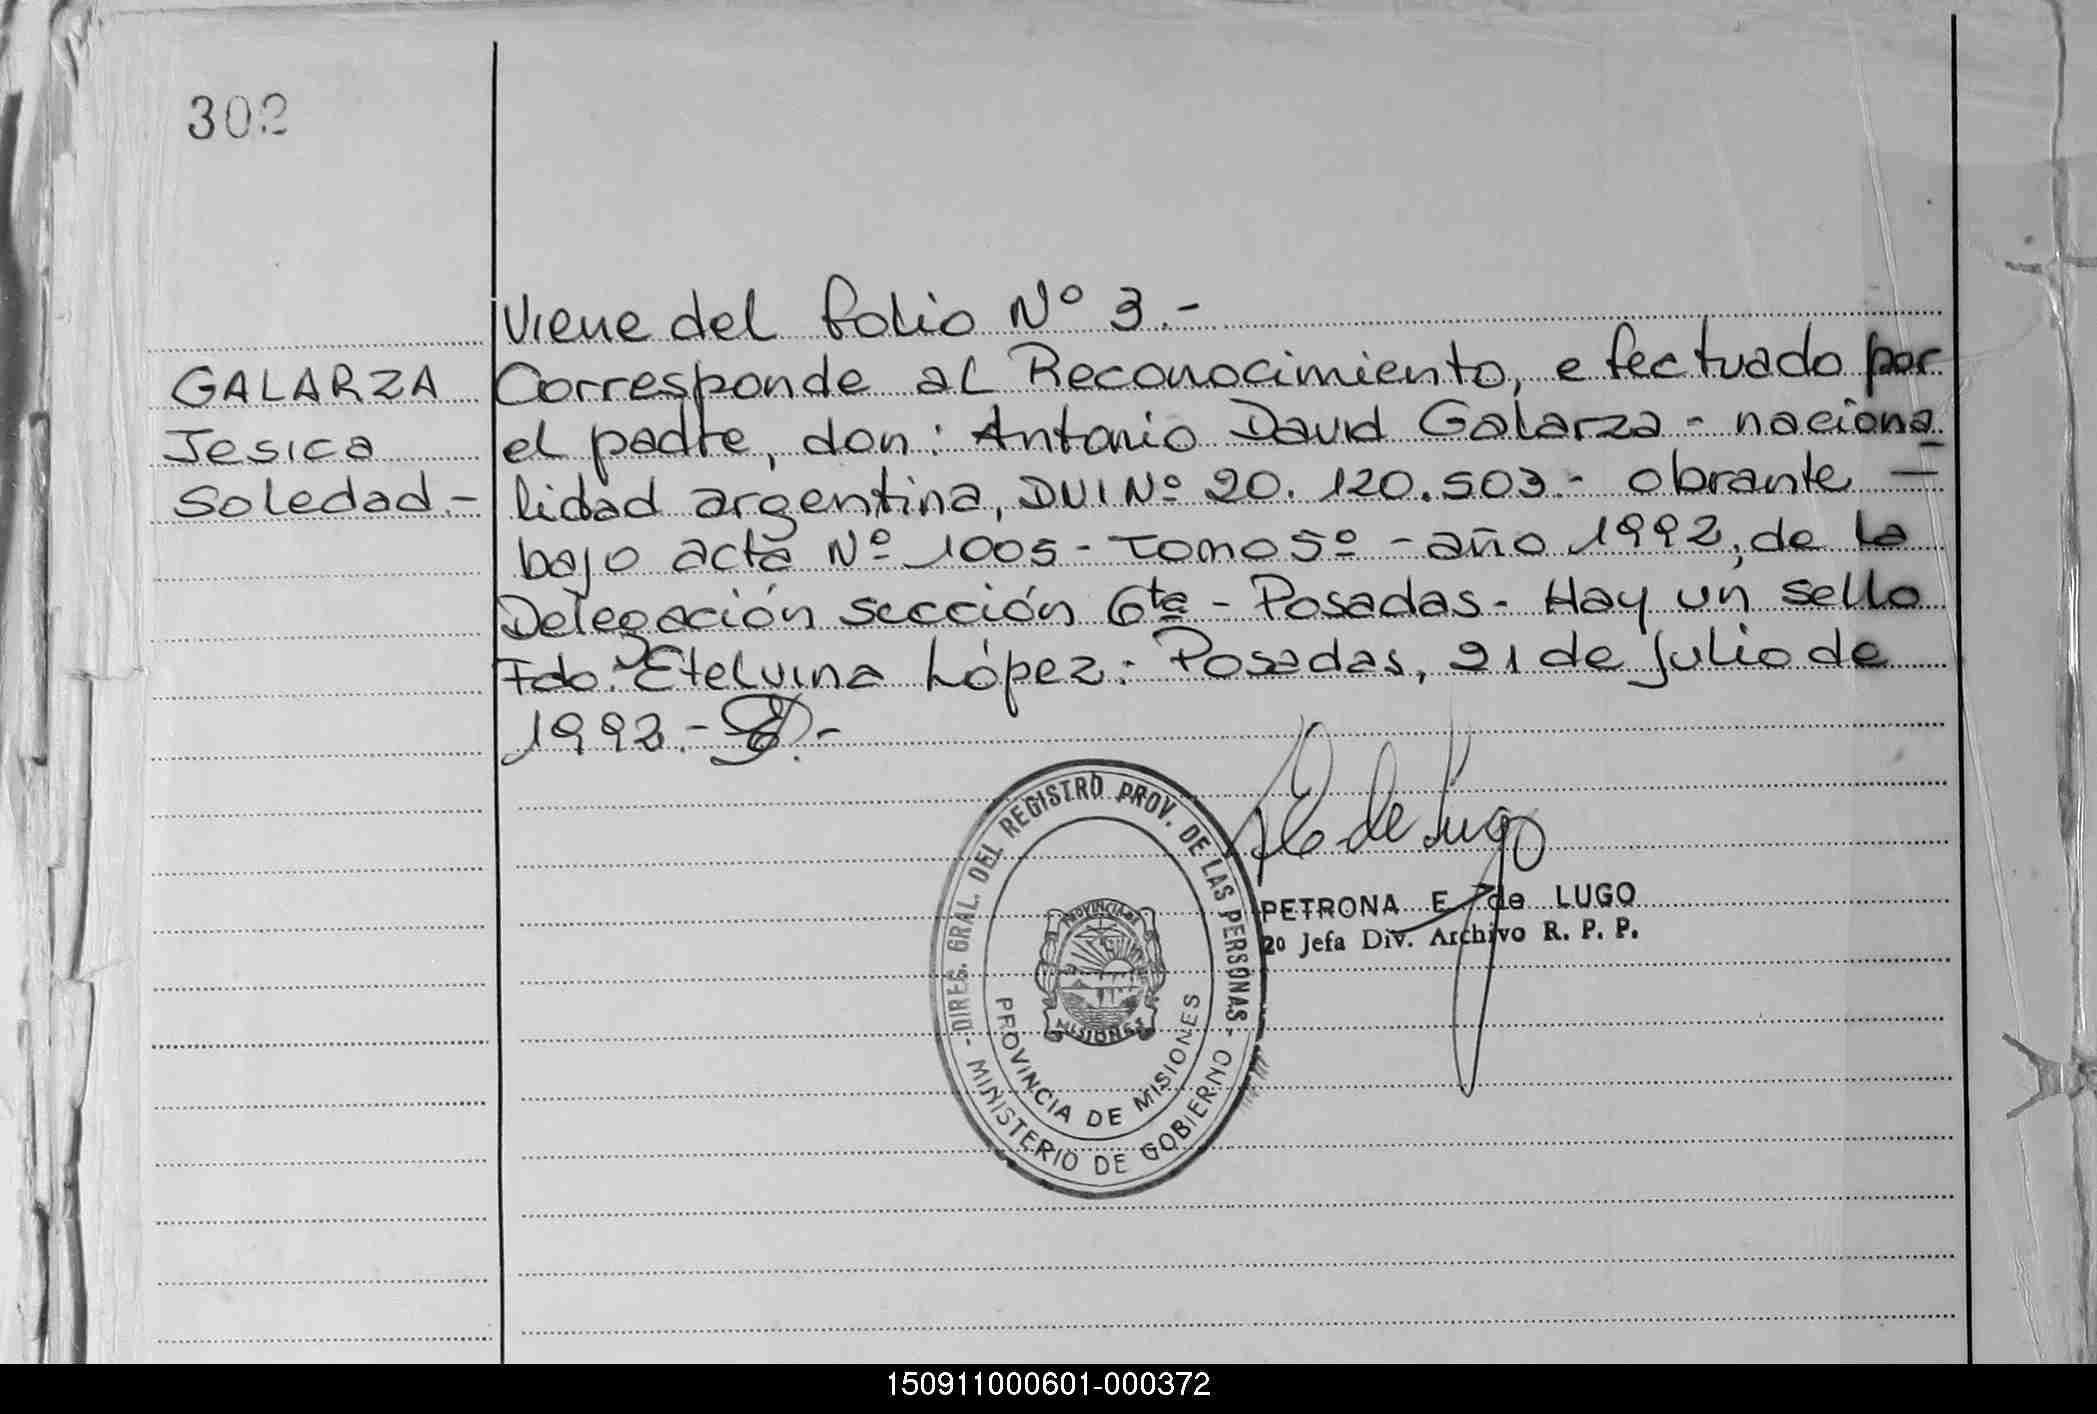 302
GALARZA
Jesica
Soledad.-
Viene del folio Nº 3.-
Corresponde al Reconocimiento, efectuado por
el padre, don: Antonio David Galarza - naciona
lidad argentina, DUI Nº 20.120.503.- obrante -
bajo acta Nº 1005 - Tomo 5º - año 1992, de la
Delegación sección 6ta - Posadas. Hay un sello
Fdo: Etelvina López: Posadas, 21 de Julio de
1992.-
de Lugo
PETRONA E. de LUGO
2º Jefa Div. Archivo R. P. P.
- DIREC. GRAL. DEL REGISTRO PROV. DE LAS PERSONAS -
MINISTERIO DE GOBIERNO
PROVINCIA DE
MISIONES
PROVINCIA DE MISIONES
150911000601-000372